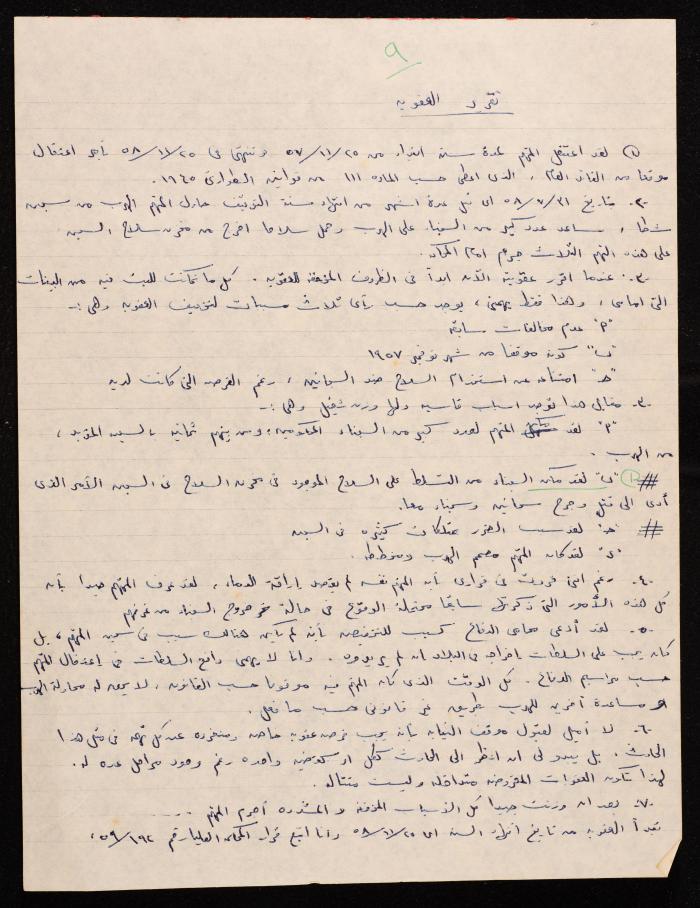 ٩
تقرير العقوبه
(١) لقد اعتقل المتهم لمدة سنة ابتداء من ٥٧/١١/٢٥ وتنتهي في ٥٨/١١/٢٥ بأمر اعتقال
موقعا من القائد العام، الذي اعطي حسب الماده ١١١ من قوانين الطوارئ ١٩٤٥.
٢- بتاريخ ٥٨/٧/٣١ اي قبل عدة اشهر من انتهاء سنة التوقيف حاول المتهم الهرب من سجن
شطه، ساعد عدد كبير من السجناء على الهرب وحمل سلاحا اخرج من مخزن سلاح السجن
على هذه التهم الثلاث جرم امام المحكمه.
٣- عندما اقرر عقوبته الآن ابدأ في الظروف المخففه للعقوبه. كل ما تمكنت للبت فيه من البينات
التي امامي، وهذا فقط يهمني، يوجد حسب رأي ثلاث مسببات لتخفيف العقوبه وهي :-
"أ" عدم مخالفات سابقه
"ب" كونه موقفا من شهر نوفمبر ١٩٥٧
"ج" امتناعه عن استخدام السلاح ضد السجانين، رغم الفرص التي كانت لديه
٣- مقابل هذا توجد اسباب قاسيه ولها وزن ثقيل وهي :-
"أ" لقد المتهم لعدد كبير من السجناء المحكومين، ومن بينهم ثمانيه بالسجن المؤبد،
من الهرب.
(١) "ب" لقد مكن السجناء من التسلط على السلاح الموجود في مخزن السلاح في السجن الأمر الذي
أدى الى قتل وجرح سجانين وسجناء معا.
"ج" لقد سبب الضرر بممتلكات كثيره في السجن
"د" لقد كان المتهم مصمم الهرب ومخططه.
٤- رغم انني قررت في قراري بأن المتهم نفسه لم يقصد إراقة الدماء، لقد عرف المتهم جيدا بأن
كل هذه الأمور التي ذكرتها سابقا محتملة الوقوع في حالة خروج السجناء من غرفهم
٥- لقد أدعى محامي الدفاع كسبب للتخفيض بأنه لم يكن هنالك سبب في سجن المتهم، بل
كان يجب على السلطات إخراجه من البلاد ان لم يريدوه. وانا لا يهمني دافع السلطات في إعتقال المتهم
حسب مراسيم الدفاع. كل الوقت الذي كان المتهم فيه موقوفا حسب القانون، لا يحق له محاولة الهرب
او مساعدة آخرين للهرب بطريق غير قانوني حسب ما فعل.
٦- لا أميل لقبول موقف النيابه بأنه يجب فرض عقوبه خاصه ومنفرده عن كل تهمه في مثل هذا
الحادث. بل يبدو لي ان انظر الى الحادث ككل او كقضيه واحده رغم وجود مراحل عده له.
لهذا تكون العقوبات المفروضه متداخله وليست متتاله.
٧- بعد ان وزنت جيدا كل الأسباب المخففه و المشدده أجرم المتهم ........
تبدأ العقوبه من تاريخ انتهاء السنه اي ٥٨/١١/٢٥ وانا اتبع قرار المحكمه العليا رقم ٥٩/١٩٢،